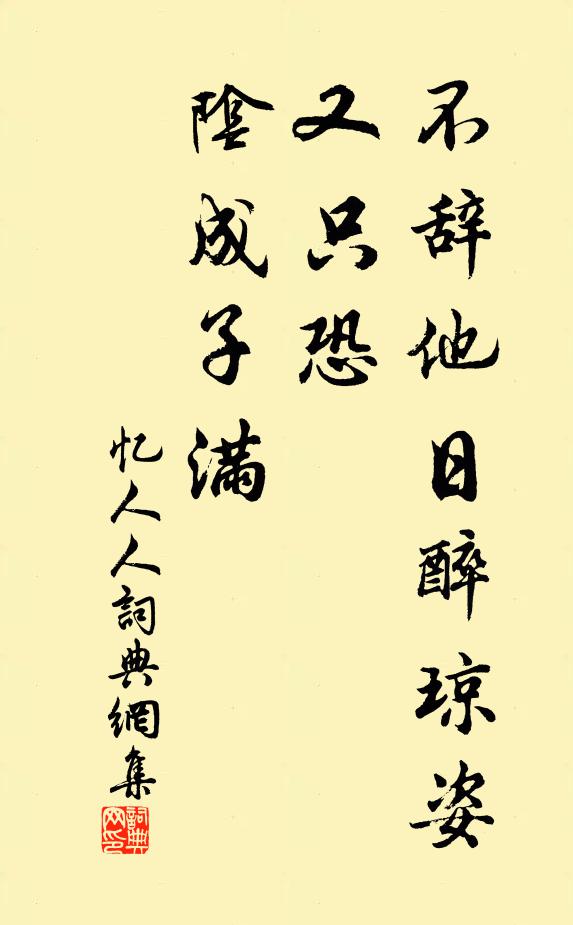 不辞他日醉琼姿
又只恐
陰成子满
忆人人詞典網集
詞典网印